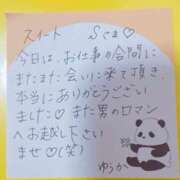 スイート　Sさま♡
今日は、お仕事の合間に
またまた会いに来て頂き
本当にありがとうござい
ました♡また男のロマン
へお越し下さい
ませ♡(笑)
ゆうか